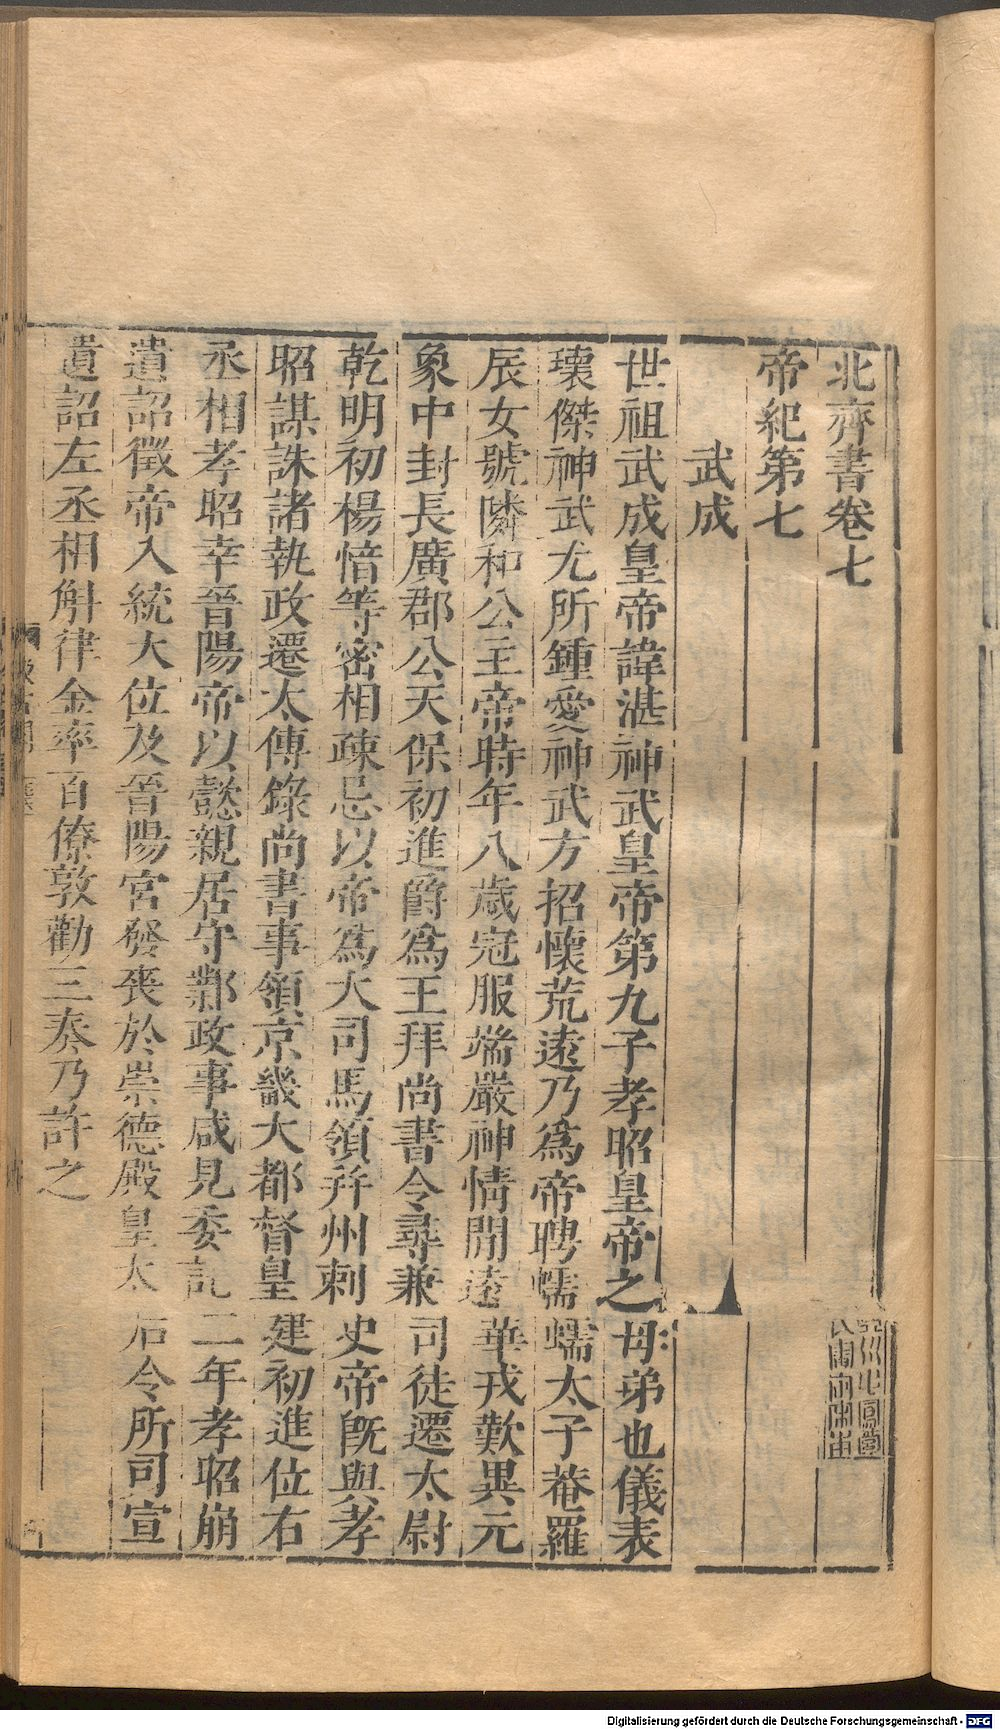 北齊書卷七
帝紀第七
武成
世祖武成皇帝諱湛神武皇帝第九子孝昭皇帝之母弟也儀表
瓌傑神武尤所鍾愛神武方招懷荒遠乃爲帝聘蠕蠕太子菴羅
辰女號隣和公主帝時年八歲冠服端嚴神情閒遠華戎歎異元
象中封長廣郡公天保初進爵爲王拜尚書令尋兼司徒遷太尉
乾明初楊愔等密相疎忌以帝爲大司馬領幷州刺史帝旣與孝
昭謀誅諸執政遷太傅錄尚書事領京畿大都督皇建初進位右
丞相孝昭幸晉陽帝以懿親居守鄴政事咸見委託二年孝昭崩
遺詔徵帝入統大位及晉陽宮發喪於崇德殿皇太后令所司宣
遺詔左丞相斛律金率百僚敦勸三奏乃許之
Digitalisierung gefördert durch die Deutsche Forschungsgemeinschaft - DFG